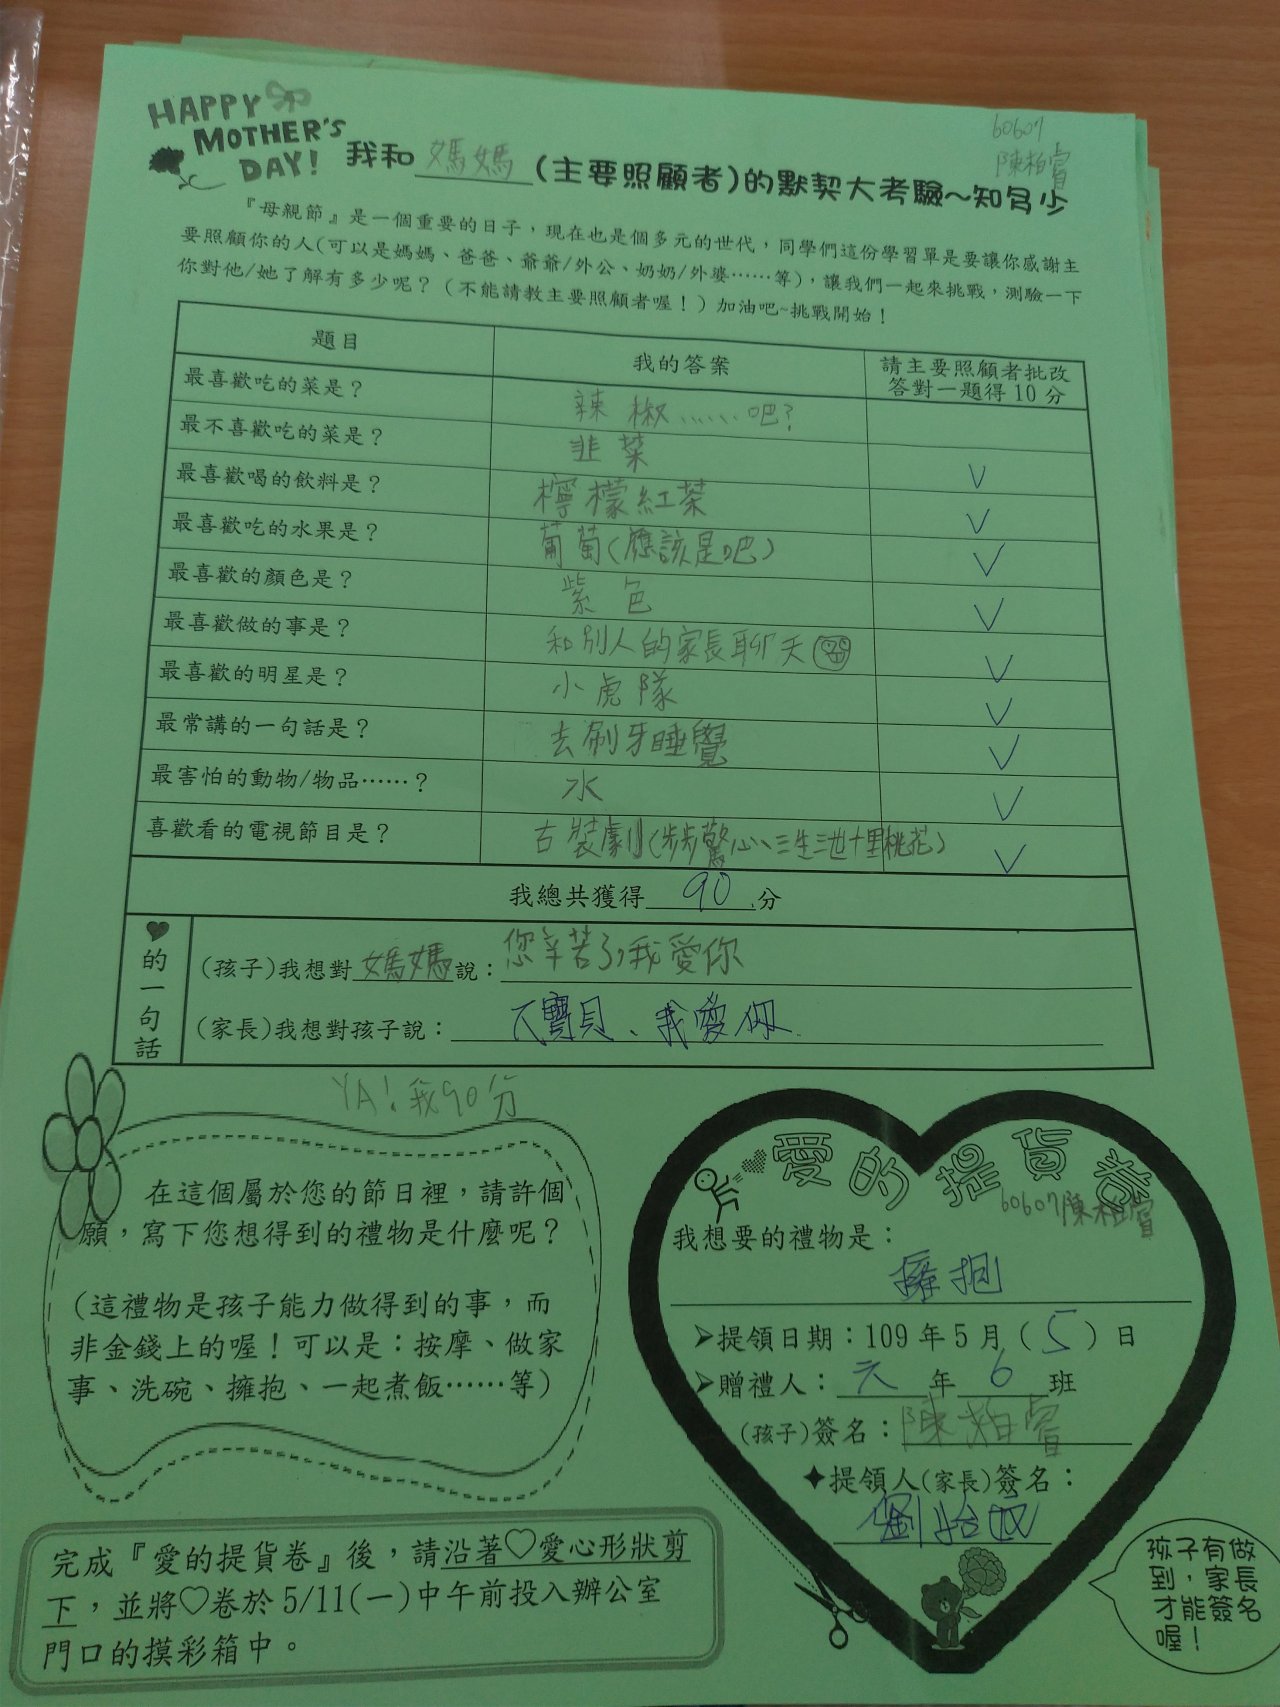 HAPPY
MOTHER'S
DAY!
60607
陳柏睿
我和媽媽(主要照顧者)的默契大考驗~知多少
『母親節』是一個重要的日子，現在也是個多元的世代，同學們這份學習單是要讓你感謝主
要照顧你的人(可以是媽媽、爸爸、爺爺/外公、奶奶/外婆……等)，讓我們一起來挑戰，測驗一下
你對他/她了解有多少呢？（不能請教主要照顧者喔！）加油吧~挑戰開始！
題目 我的答案 請主要照顧者批改
答對一題得10分
最喜歡吃的菜是？ 辣椒……吧?
最不喜歡吃的菜是？ 韭菜 ✓
最喜歡喝的飲料是？ 檸檬紅茶 ✓
最喜歡吃的水果是？ 葡萄(應該是吧) ✓
最喜歡的顏色是？ 紫色 ✓
最喜歡做的事是？ 和別人的家長聊天 ✓
最喜歡的明星是？ 小虎隊 ✓
最常講的一句話是？ 去刷牙睡覺 ✓
最害怕的動物/物品……？ 水 ✓
喜歡看的電視節目是？ 古裝劇(步步驚心、三生三世十里桃花) ✓
我總共獲得 90 分
♥的一句話
(孩子)我想對媽媽說：您辛苦了,我愛你
(家長)我想對孩子說：寶貝、我愛你
YA!我90分
在這個屬於您的節日裡，請許個
願，寫下您想得到的禮物是什麼呢？
(這禮物是孩子能力做得到的事，而
非金錢上的喔！可以是：按摩、做家
事、洗碗、擁抱、一起煮飯……等)
愛的提貨卷
60607陳柏睿
我想要的禮物是：
擁抱
➢提領日期：109年5月（5）日
➢贈禮人：六年6班
(孩子)簽名：陳柏睿
✦提領人(家長)簽名：
劉怡
完成『愛的提貨卷』後，請沿著♡愛心形狀剪
下，並將♡卷於5/11(一)中午前投入辦公室
門口的摸彩箱中。
孩子有做
到，家長
才能簽名
喔！